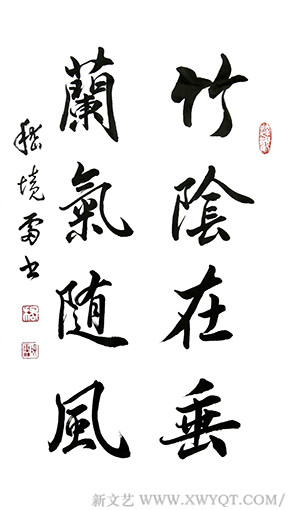 竹陰在垂
蘭氣随風
境雷书
新文艺 WWW.XWYQT.COM/